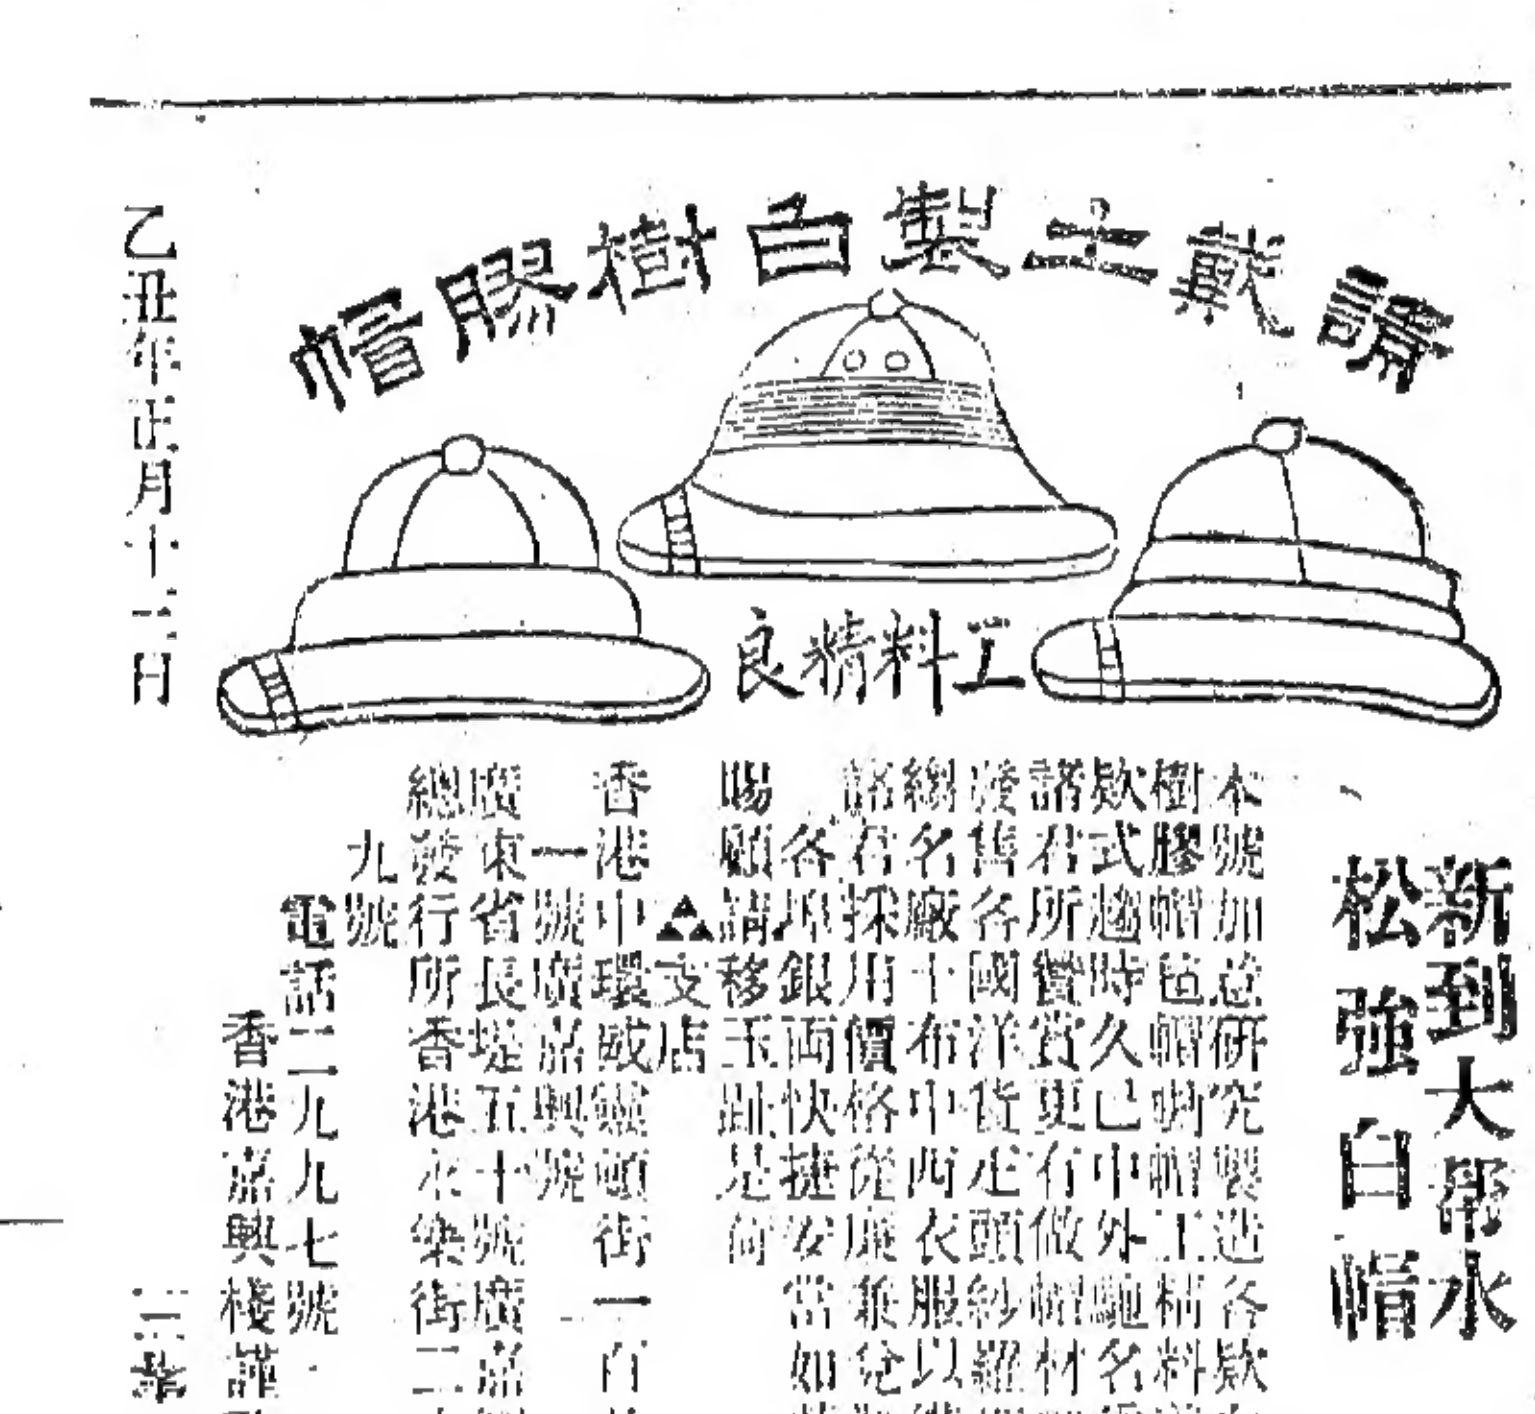 請戴土製白樹膠帽
工料精良
新到大帮水
松強白帽
本號加意研究製造各欵
樹膠帽氊帽晒帽工精料
欵式趨時久已中外馳名
諸君所贊賞更有做帽材
發售各國洋貨疋頭紗羅
縐名廠十布中西衣服以
諸君採用價格從廉兼兌
各埠銀両快捷安當如
賜顧請移玉趾是荷
支店
香港中環威靈頓街一百
一號廣嘉興號
廣東省長堤五十號廣嘉
總發行所香港永樂街二
九號
電話二九九七號
香港嘉興棧謹
乙丑年正月十二日